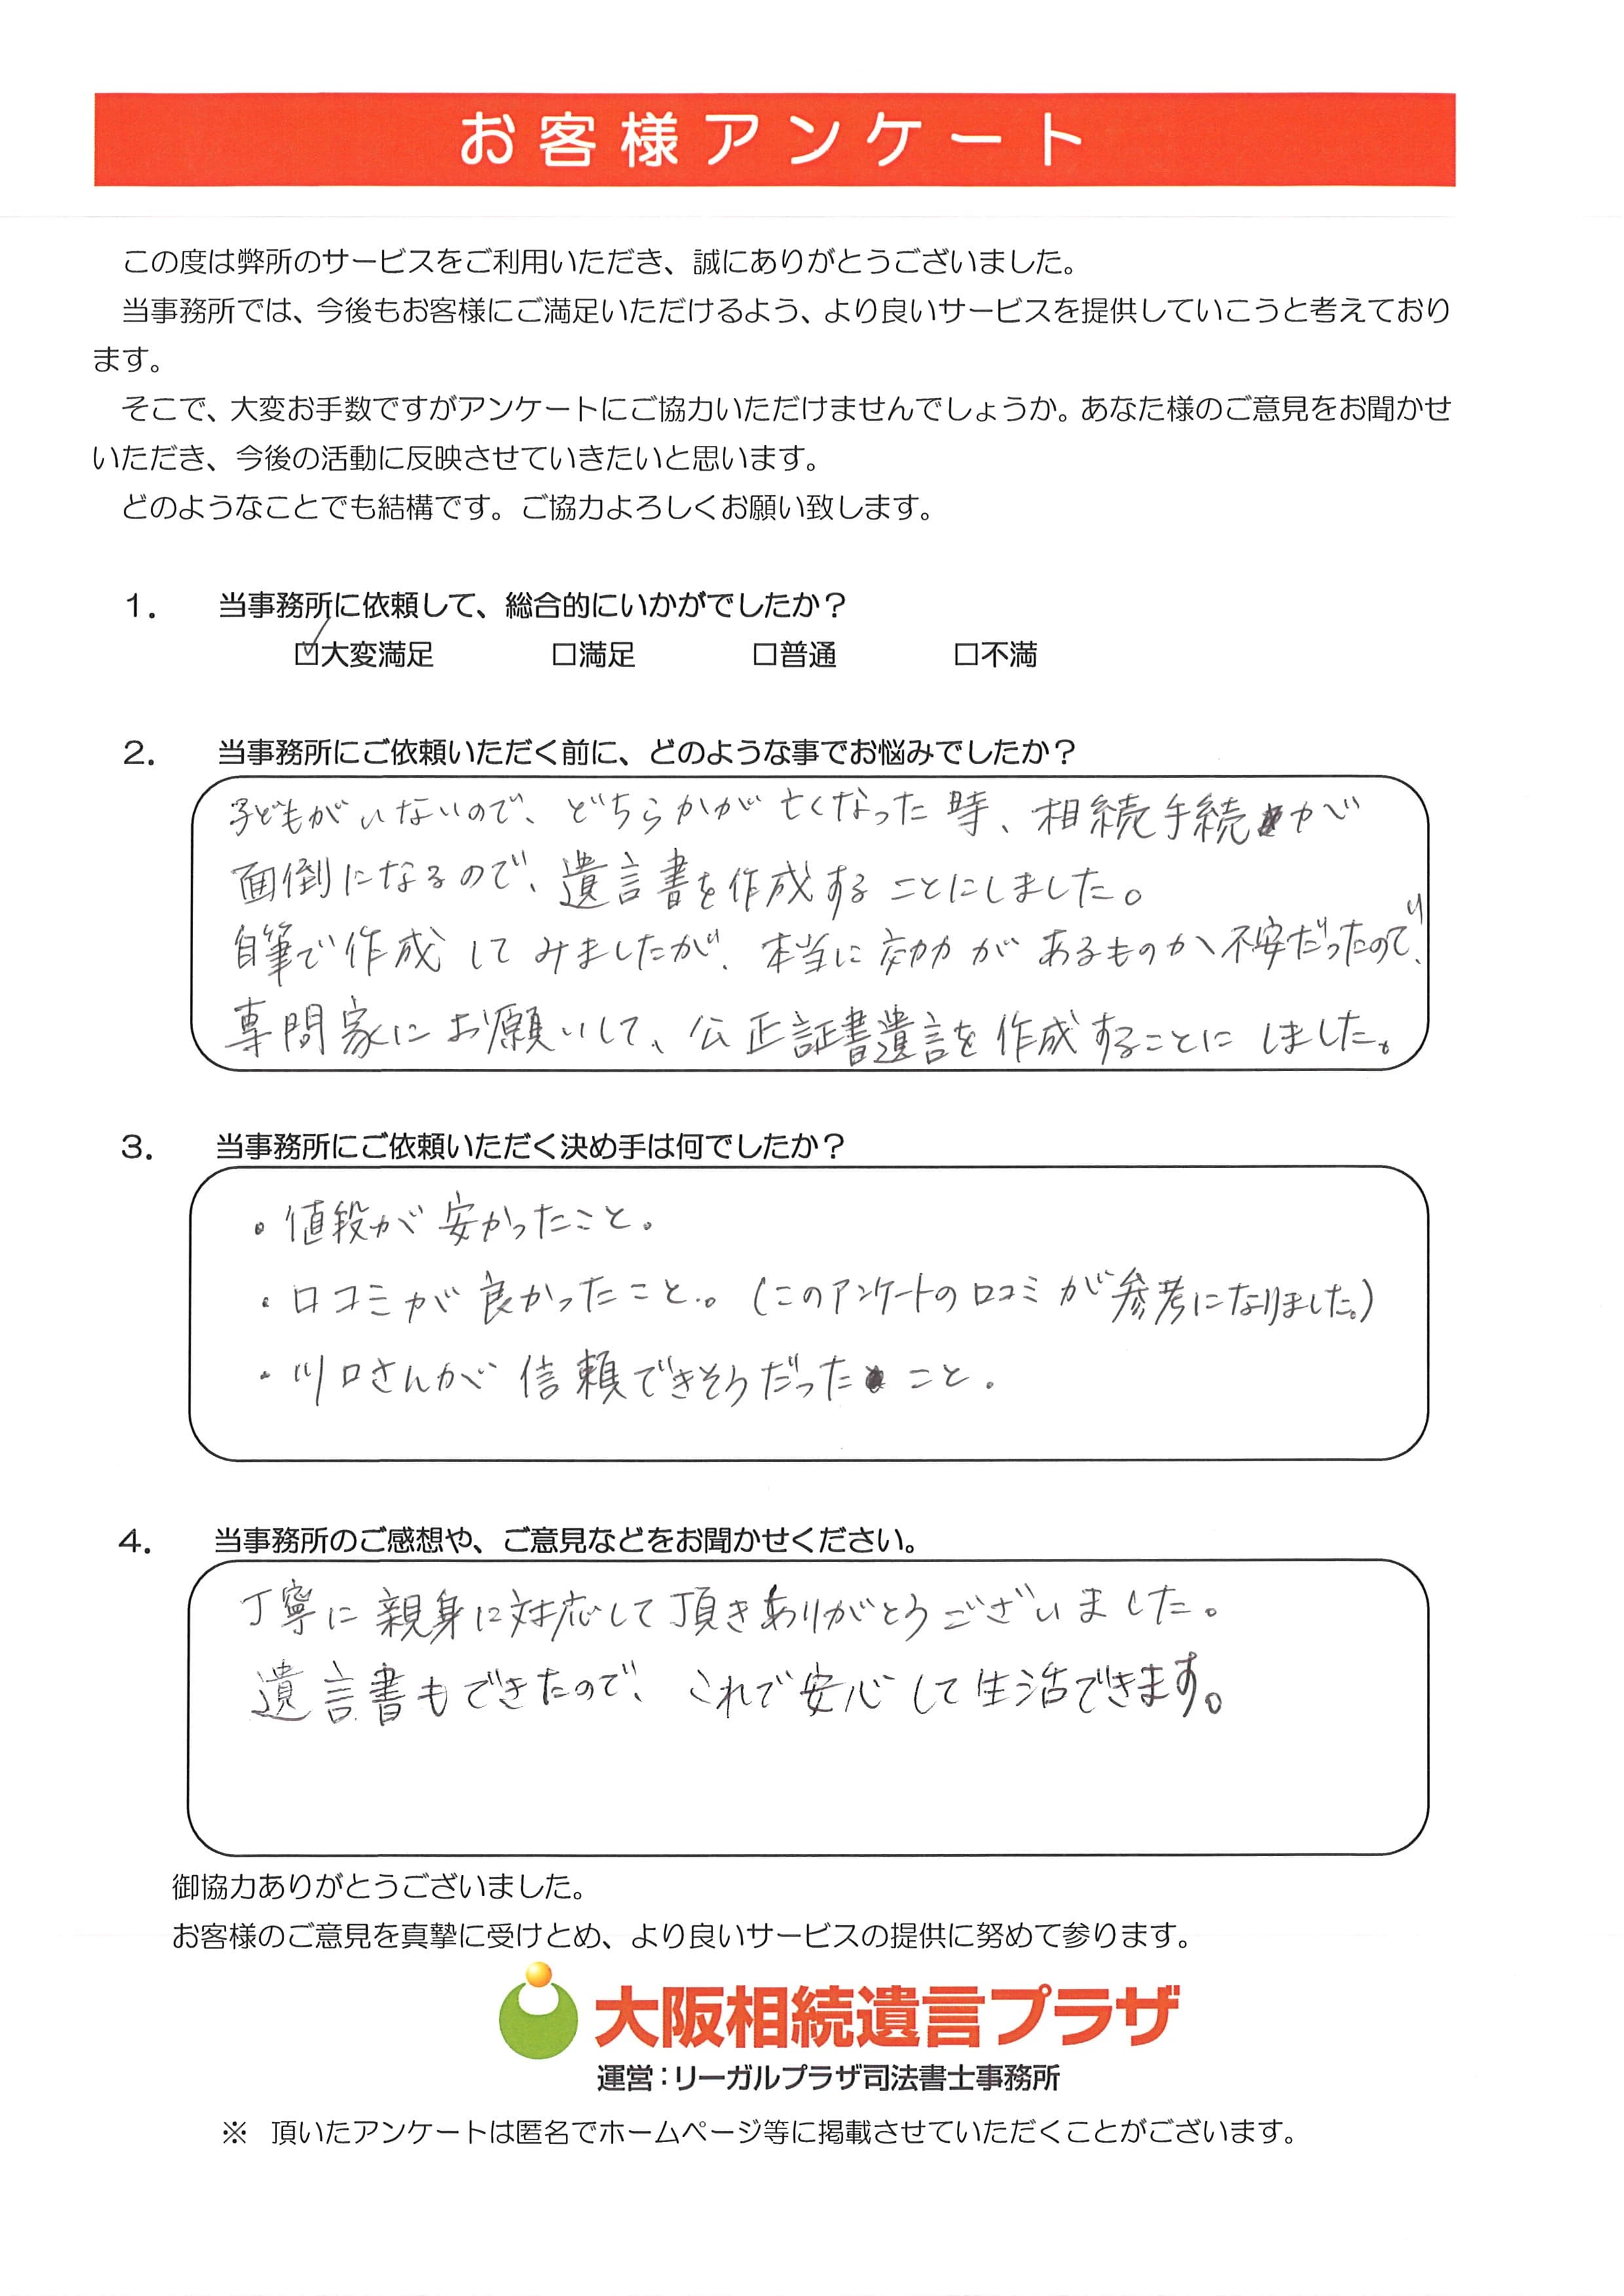 お客様アンケート
この度は弊所のサービスをご利用いただき、誠にありがとうございました。
当事務所では、今後もお客様にご満足いただけるよう、より良いサービスを提供していこうと考えており
ます。
そこで、大変お手数ですがアンケートにご協力いただけませんでしょうか。あなた様のご意見をお聞かせ
いただき、今後の活動に反映させていきたいと思います。
どのようなことでも結構です。ご協力よろしくお願い致します。
1. 当事務所に依頼して、総合的にいかがでしたか？
☑大変満足 □満足 □普通 □不満
2. 当事務所にご依頼いただく前に、どのような事でお悩みでしたか？
子どもがいないので、どちらかが亡くなった時、相続手続が
面倒になるので、遺言書を作成することにしました。
自筆で作成してみましたが、本当に効力があるものか不安だったので、
専門家にお願いして、公正証書遺言を作成することにしました。
3. 当事務所にご依頼いただく決め手は何でしたか？
・値段が安かったこと。
・口コミが良かったこと。(このアンケートの口コミが参考になりました。)
・川口さんが信頼できそうだったこと。
4. 当事務所のご感想や、ご意見などをお聞かせください。
丁寧に親身に対応して頂きありがとうございました。
遺言書もできたので、これで安心して生活できます。
御協力ありがとうございました。
お客様のご意見を真摯に受けとめ、より良いサービスの提供に努めて参ります。
大阪相続遺言プラザ
運営：リーガルプラザ司法書士事務所
※ 頂いたアンケートは匿名でホームページ等に掲載させていただくことがございます。